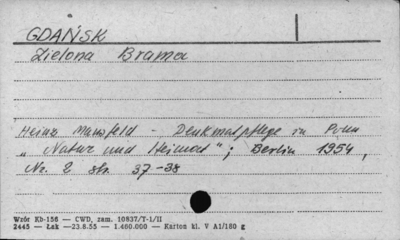 GDAŃSK
Zielona Brama
Heinz Mansfeld - Denkmalpflege in Polen
„Natur und Heimat"; Berlin 1954,
Nr. 2 str. 37-38
Wzór Kb-156 — CWD, zam. 10837/T-1/II
2445 — Łsk —23.8.55 — 1.460.000 — Karton kl. V A1/180 g